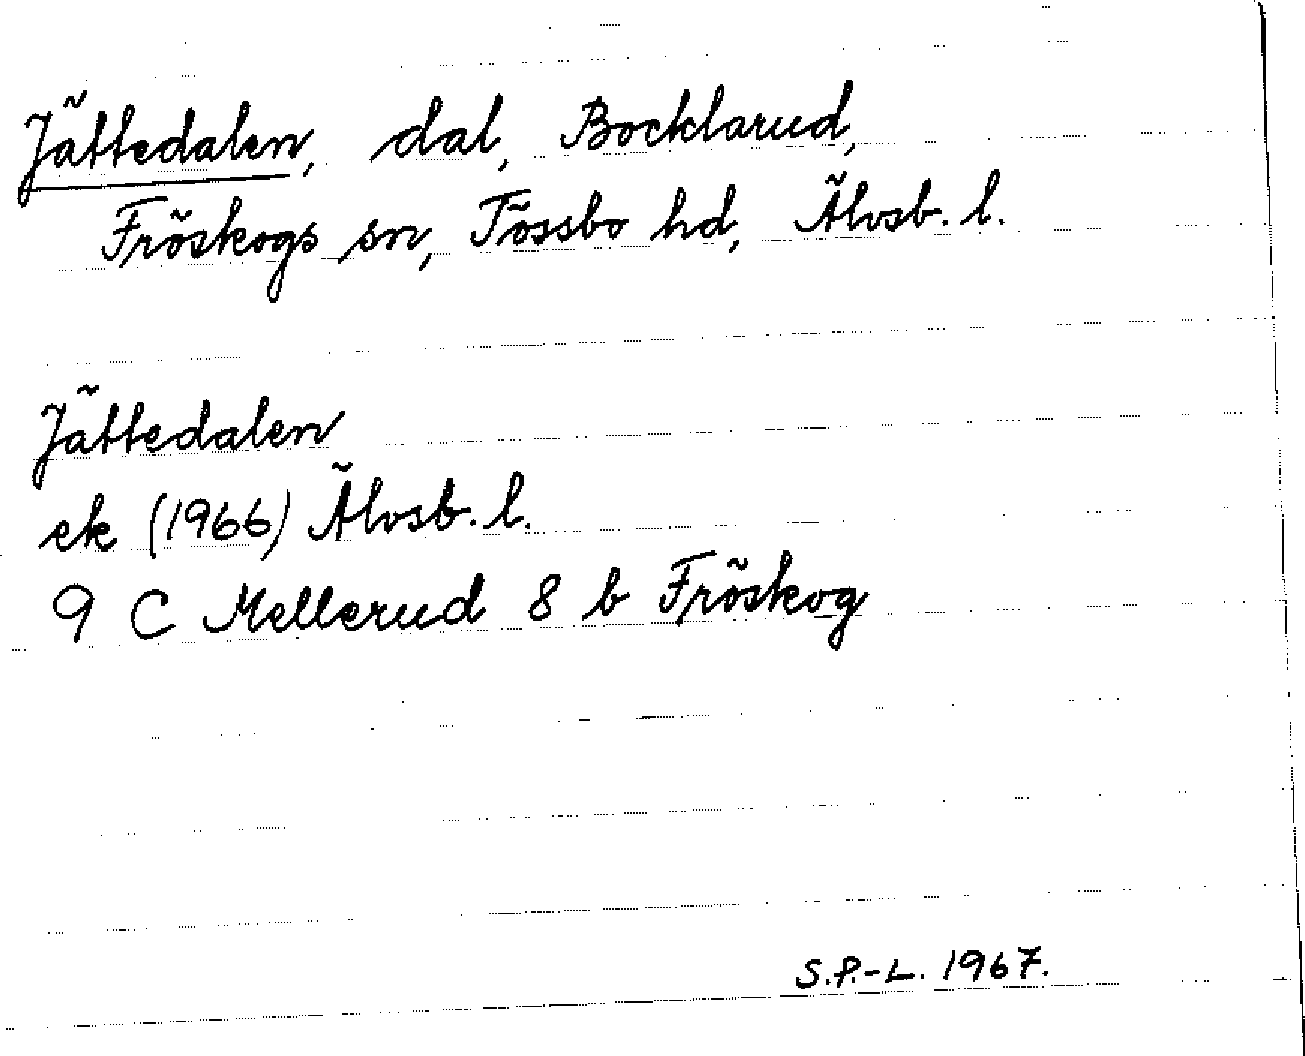 Jättedalen, dal, Bocklarud,
Fröskogs sn, Tössbo hd, Älvsb. l.
Jättedalen
ek (1966) Älvsb. l.
9 C Mellerud 8 b Fröskog
S.P.-L. 1967.